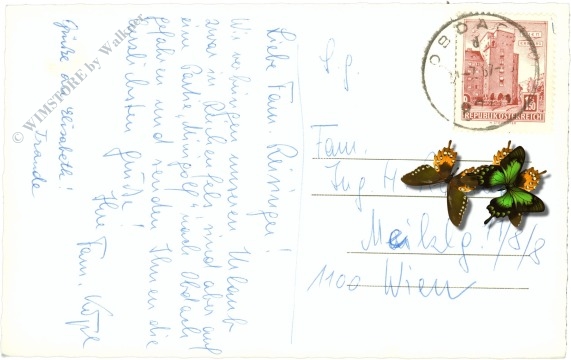 Liebe Fam. Reisinger!
Wir verbringen unseren Urlaub
zwar in Reichenfels sind aber auf
eine Partie „Minigolf“ nach Obdach
gefahren und senden Ihnen die
herzlichsten Grüße!
Ihre Fam. 
Grüße an Elisabeth!
Traude
© WIMSTORE by Walker
OBDACH
REPUBLIK ÖSTERREICH
1.50
Fam.
Ing. H
1100 Wien